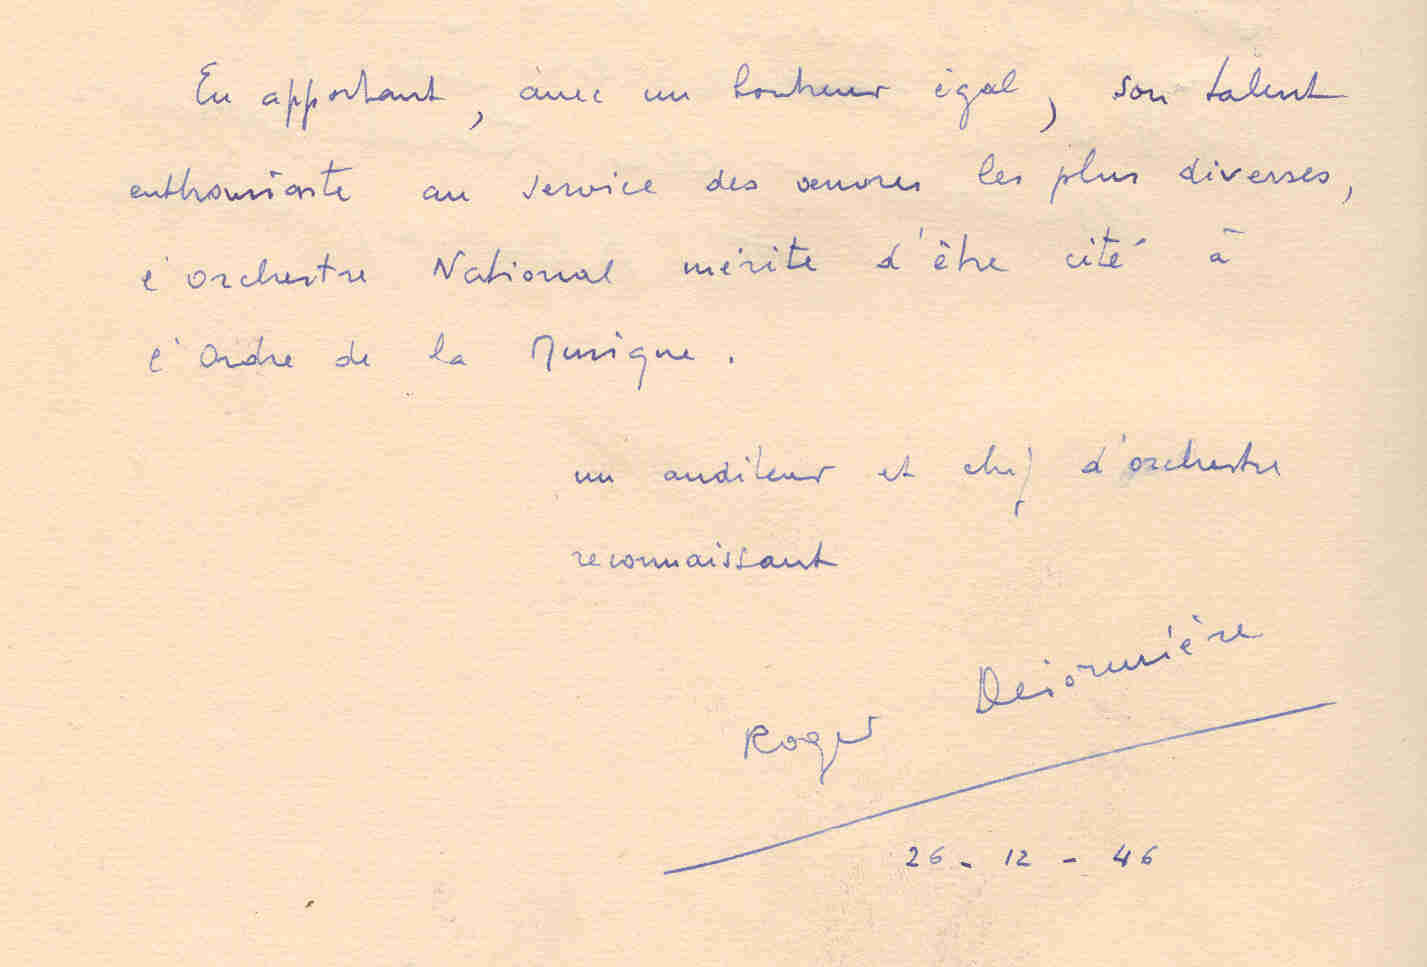 En apportant, avec un bonheur égal, son talent
enthousiaste au service des œuvres les plus diverses,
l'orchestre National mérite d'être cité à
l'ordre de la Musique.
un auditeur et chef d'orchestre
reconnaissant
Roger Desormière
26 - 12 - 46